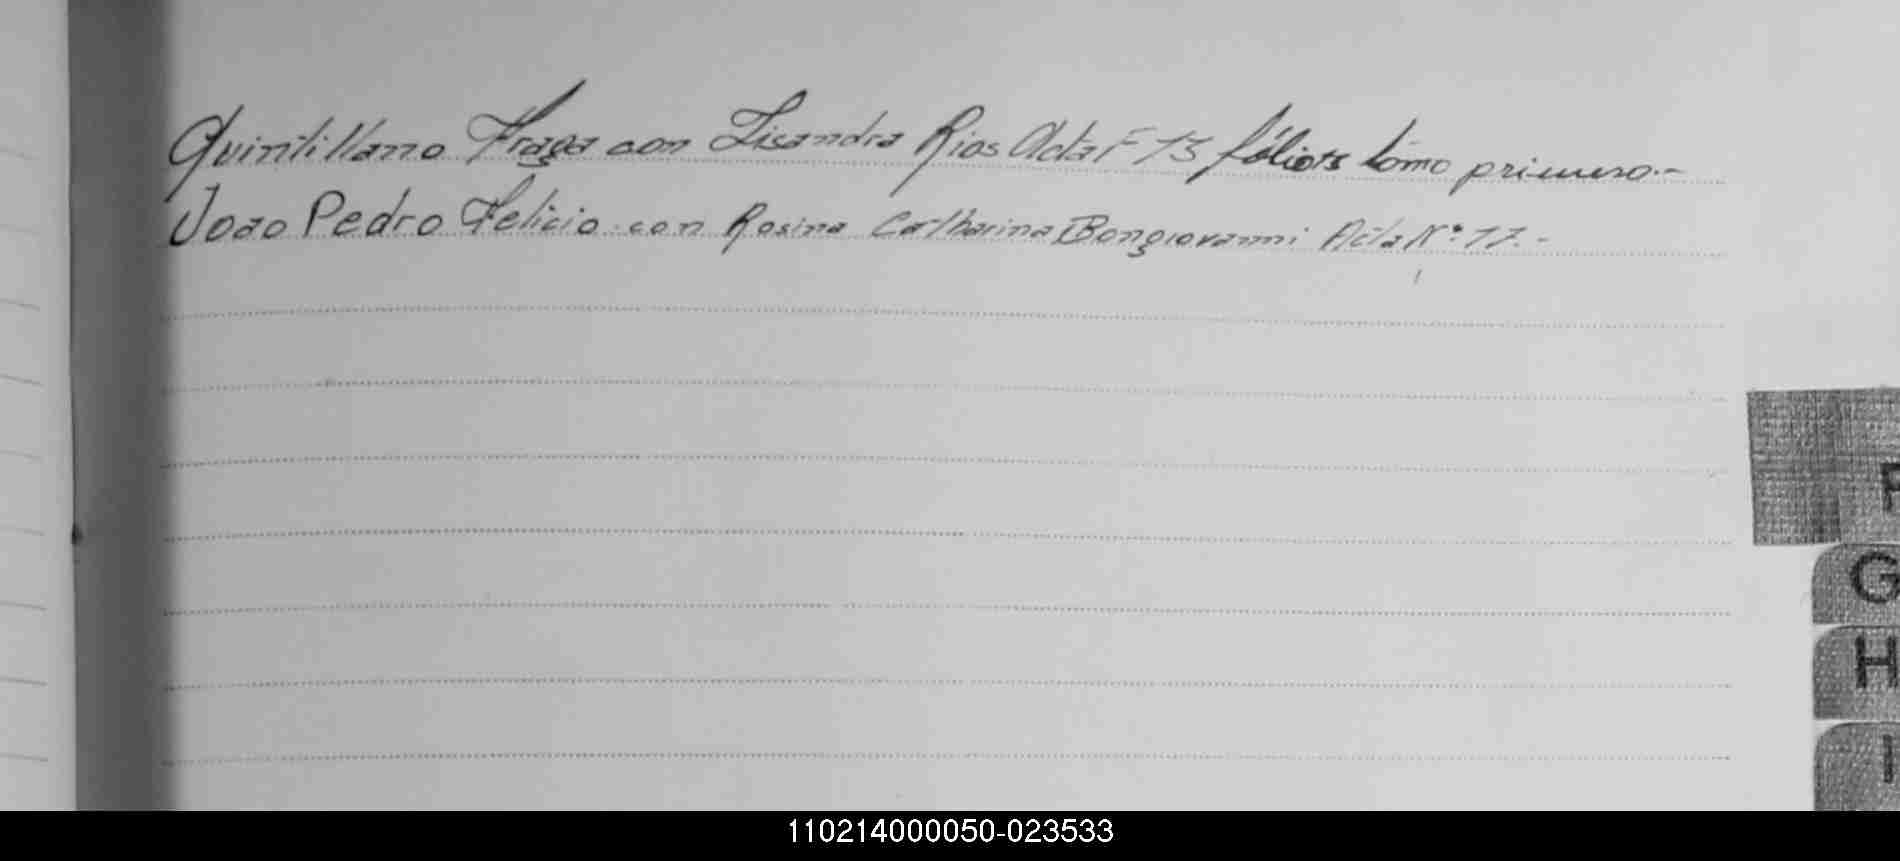 Quintillano Fraga con Lisandra Rios Acta F 13 fólio tómo primero.-
Joao Pedro Felicio con Rosina Catharina Bongiovanni Acta Nº 17.-
F
G
H
I
110214000050-023533